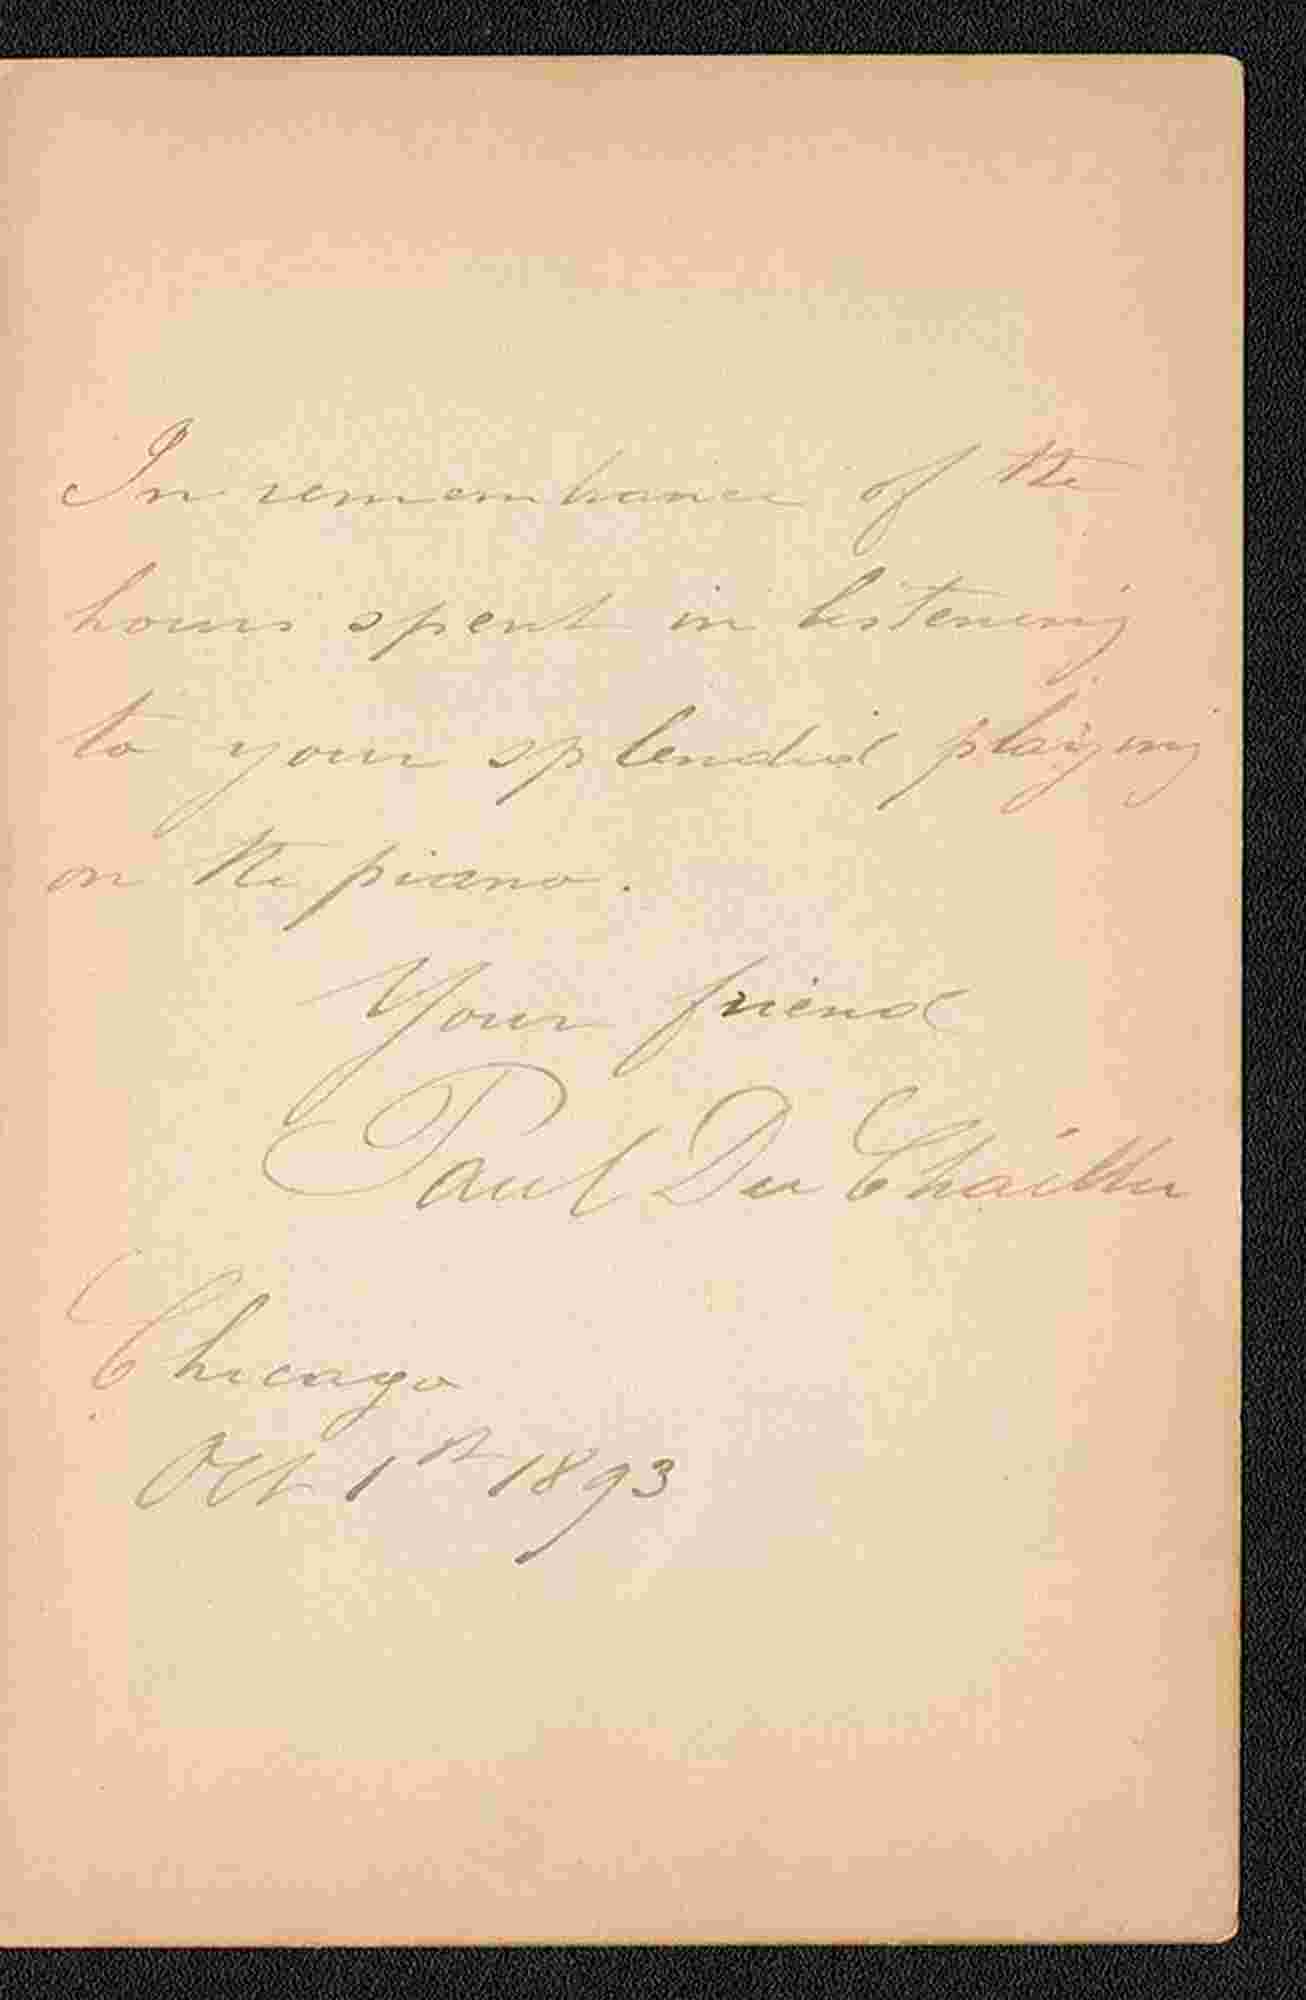 In remembrance of the
hours spent in listening
to your splendid playing
on the piano.
Your friend
Paul Du Chaillu
Chicago
Oct 1st 1893